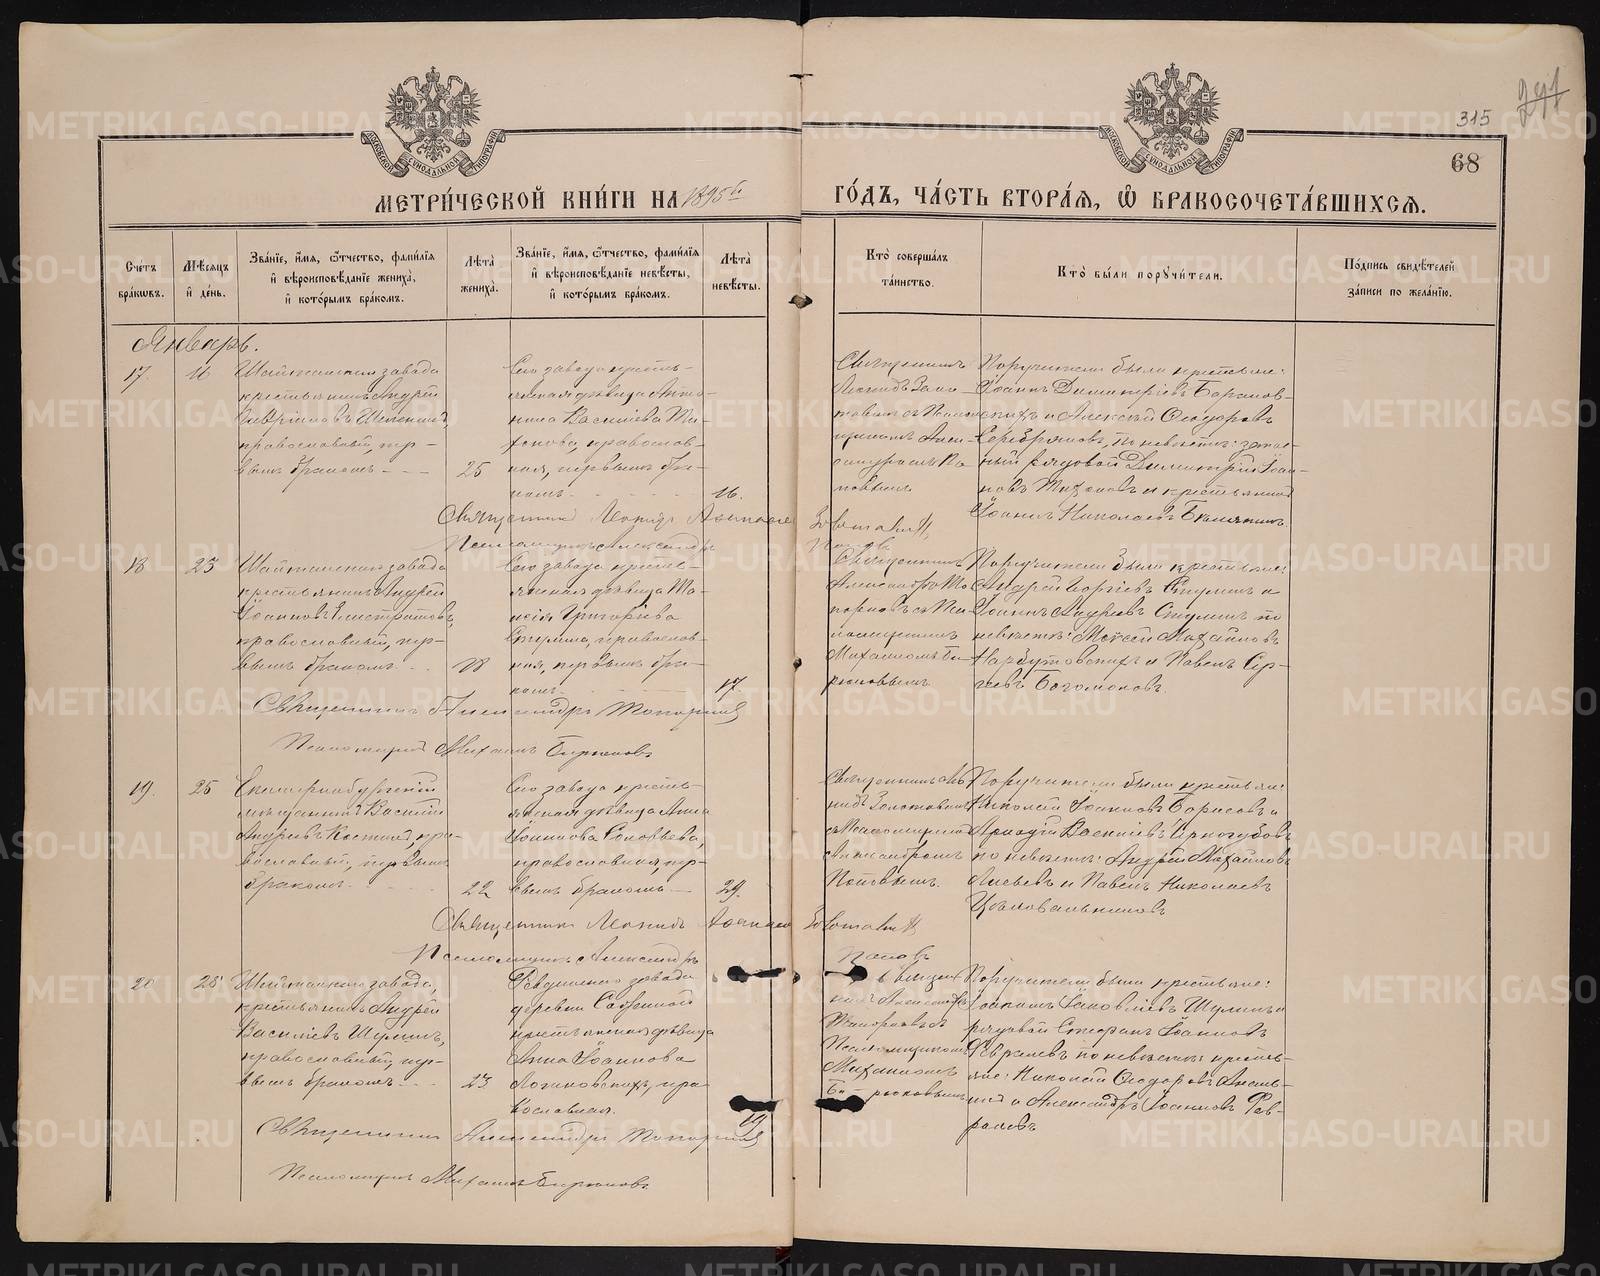 315
68
МЕТРИ́ЧЕСКОЙ КНИ́ГИ НА 1895й
ГО́ДЪ, ЧА́СТЬ ВТОРА́Я, Ѡ БРАКОСОЧЕТА́ВШИХСЯ.
Сче́тъ бра́ковъ.
Мѣ́сяцъ и҆ де́нь.
Зва́нїе, и҆́мя, ѻ҆́тчество, фами́лїя
и҆ вѣроисповѣ́данїе жениха̀,
и҆ кото́рымъ бра́комъ.
Лѣ́та жениха̀.
Зва́нїе, и҆́мя, ѻ҆́тчество, фами́лїя
и҆ вѣроисповѣ́данїе невѣ́сты,
и҆ кото́рымъ бра́комъ.
Лѣ́та невѣ́сты.
Кто̀ соверша́лъ
та́инство.
Кто̀ бы́ли порꙋчи́тели.
По́дпись свидѣ́телей
за́писи по жела́нїю.
Январь.
17.
16
Шайтанскаго завода
крестьянинъ Андрей
православный, пер-
вымъ бракомъ
25
Сего завода кресть-
янская дѣвица Анто-
нина Василіева Ти-
хонова, православ-
ная, первымъ бра-
комъ.
16.
Священникъ
Леонидъ Золо-
тавинъ съ Псалом-
щикомъ Алек-
сандромъ По-
повымъ
Поручители были крестьяне:
Іоаннъ Димитріевъ Баранов-
скихъ и Алексѣй Ѳеодоровъ
Серебряковъ, по невѣстѣ: запас-
ный рядовой Димитрій Іоан-
новъ Тихоновъ и крестьянинъ
Іоаннъ Николаевъ
Священникъ Леонидъ Золотавинъ
Псаломщикъ Александръ Поповъ
18
23
Шайтанскаго завода
крестьянинъ Андрей
Іоанновъ Елистратовъ,
православный, пер-
вымъ бракомъ
18
Сего завода кресть-
янская дѣвица Та-
исія Григоріева
Стулина, православ-
ная, первымъ бра-
комъ.
17.
Священникъ
Александръ То-
порковъ съ Пса-
ломщикомъ
Михаиломъ Би-
рюковымъ
Поручители были крестьяне:
Андрей Георгіевъ Стулинъ и
Іоаннъ Андреевъ Стулинъ по
невѣстѣ: Моѵсей Михайловъ
Нарбутовскихъ и Павелъ Сер-
гіевъ Богомоловъ.
Священникъ Александръ Топорковъ
Псаломщикъ Михаилъ Бирюковъ
19.
25
Екатеринбургскій
мѣщанинъ Василій
православный, первымъ
бракомъ.
22
Сего завода кресть-
янская дѣвица Анна
Іоаннова Соловьева,
православная, пер-
вымъ бракомъ
29.
Священникъ Лео-
нидъ Золотавинъ
съ Псаломщикомъ
Александромъ
Поповымъ.
Поручители были крестьяне:
Николай Іоанновъ Борисовъ и
Аркадій Василіевъ Черногубовъ
по невѣстѣ: Андрей Михайловъ
и Павелъ Николаевъ
Цѣловальниковъ
Священникъ Леонидъ Золотавинъ
Псаломщикъ Александръ Поповъ
20
25
Шайтанскаго завода,
крестьянинъ Андрей
Василіевъ Шулинъ,
православный, пер-
вымъ бракомъ
23
Ревдинского завода
деревни
крестьянская дѣвица
Анна Іоаннова
Логиновскихъ, пра-
вославная.
19
Священ-
никъ Александръ
Топорковъ съ
Псаломщикомъ
Михаиломъ
Бирюковымъ
Поручители были крестьяне:
Іоакимъ Іаковлевъ Шулинъ и
рядовой Стефанъ Іоанновъ
Февралевъ по невѣстѣ: кресть-
яне: Николай Ѳеодоровъ
и Александръ Іоанновъ Фев-
ралевъ
Священникъ Александръ Топорковъ
Псаломщикъ Михаилъ Бирюковъ
METRIKI.GASO-URAL.RU